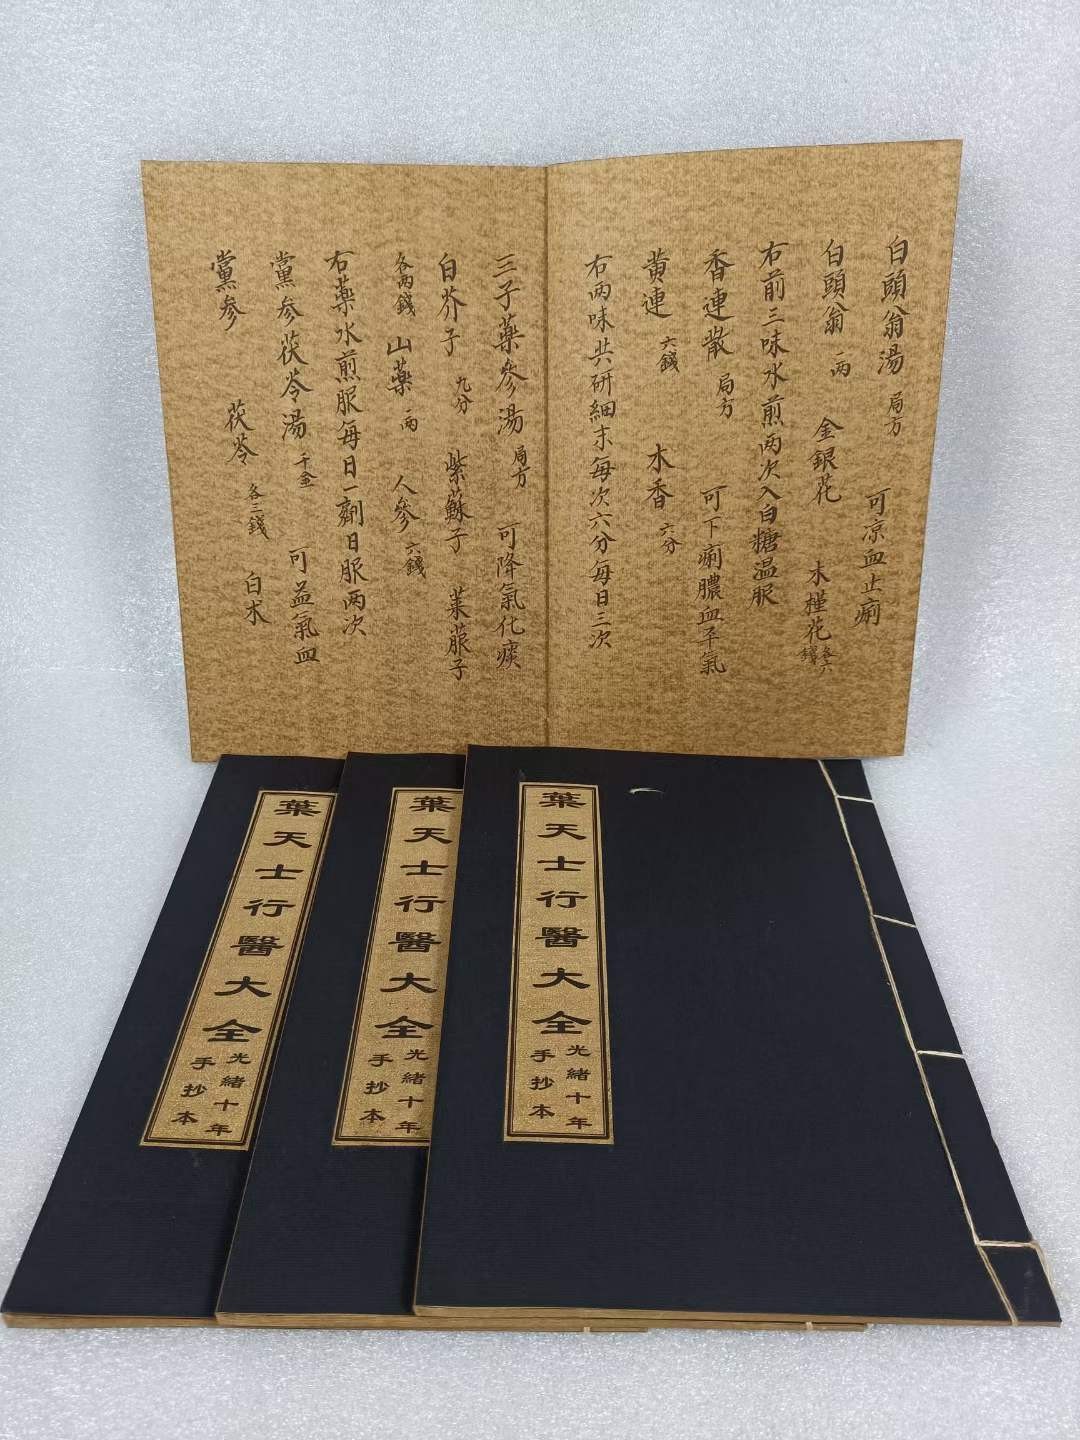 白頭翁湯 局方 可凉血止痢
白頭翁 一两 金銀花 木槿花 各六錢
右前三味水煎两次入白糖温服
香連散 局方 可下痢膿血平氣
黄連 六錢 木香 六分
右两味共研細末每次六分每日三次
三子藥參湯 局方 可降氣化痰
白芥子 九分 紫蘇子 萊菔子
各两錢 山藥 一两 人參 六錢
右藥水煎服每日一劑日服两次
黨參茯苓湯 千金 可益氣血
黨參 茯苓 各三錢 白术
葉天士行醫大全
光緒十年
手抄本
葉天士行醫大全
光緒十年
手抄本
葉天士行醫大全
光緒十年
手抄本